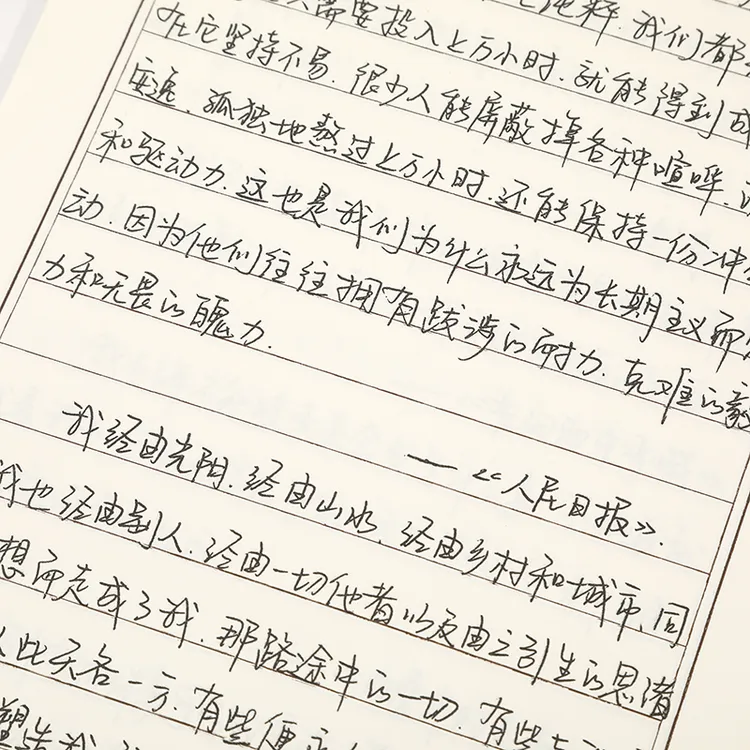 需要投入上万小时.就能得到成
在它坚持不易.很少人能屏蔽掉各种喧哗.
安逸.孤独地熬过上万小时.还能保持一份冲
和驱动力.这也是我们为什么永远为长期主义而
动.因为他们往往拥有跋涉的耐力.克难的毅
力和无畏的魄力.
——《人民日报》.
我经由光阴.经由山水.经由乡村和城市.同
我也经由别人.经由一切他者以及由之引生的思潜
想而走成了我.那路途中的一切.有些与
人此天各一方.有些便永
塑造我